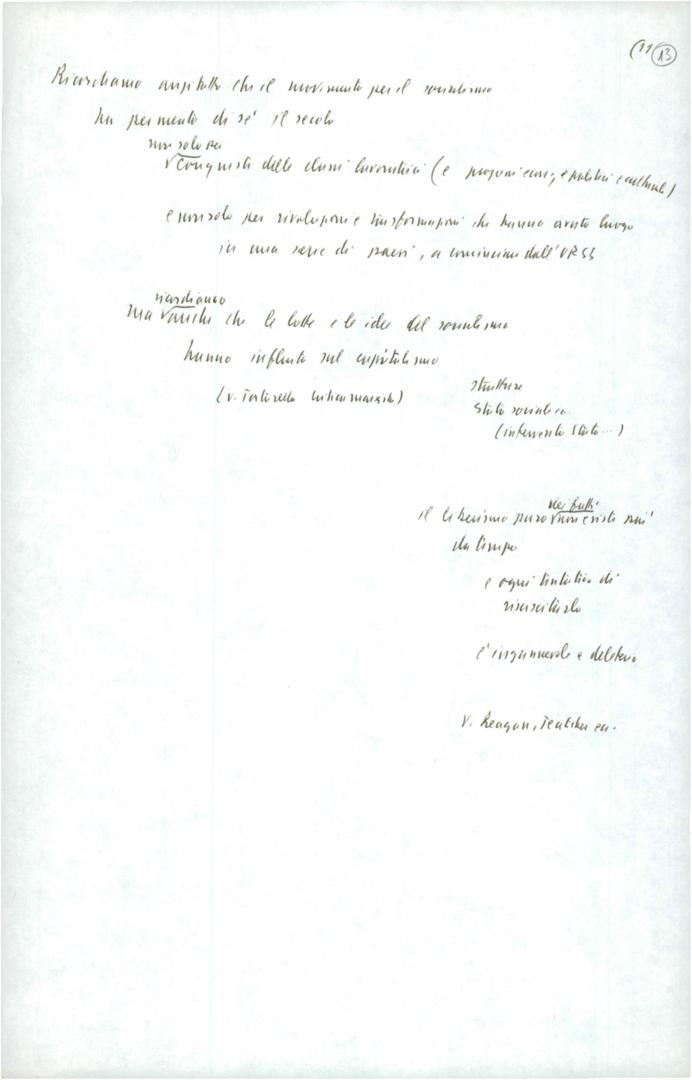 (11 13
Ricordiamo anzitutto che il movimento per il socialismo
ha permeato di sé il secolo
non solo per
conquiste delle classi lavoratrici (e progressi econ., e politici e culturali)
e non solo per rivoluzioni e trasformazioni che hanno avuto luogo
in una serie di paesi, a cominciare dall'URSS
ricordiamo
ma anche che le lotte e le idee del socialismo
hanno influito sul capitalismo
(v. Tortorella)
strutture
Stato sociale ecc.
(intervento Stato...)
nei fatti
il liberismo puro non esiste più
da tempo
e ogni tentativo di
risuscitarlo
è ingannevole e deleterio
v. Reagan, Teatcher ecc.